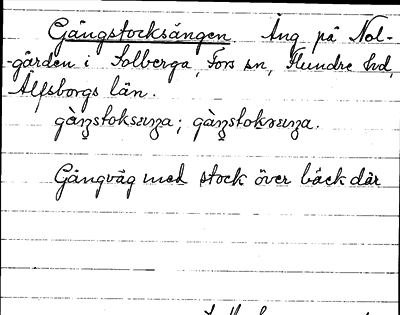 Gångstocksängen Äng på Nol-
-gården i Solberga, Fors sn, Flundre hd,
Älfsborgs län.
Gångväg med stock över bäck där